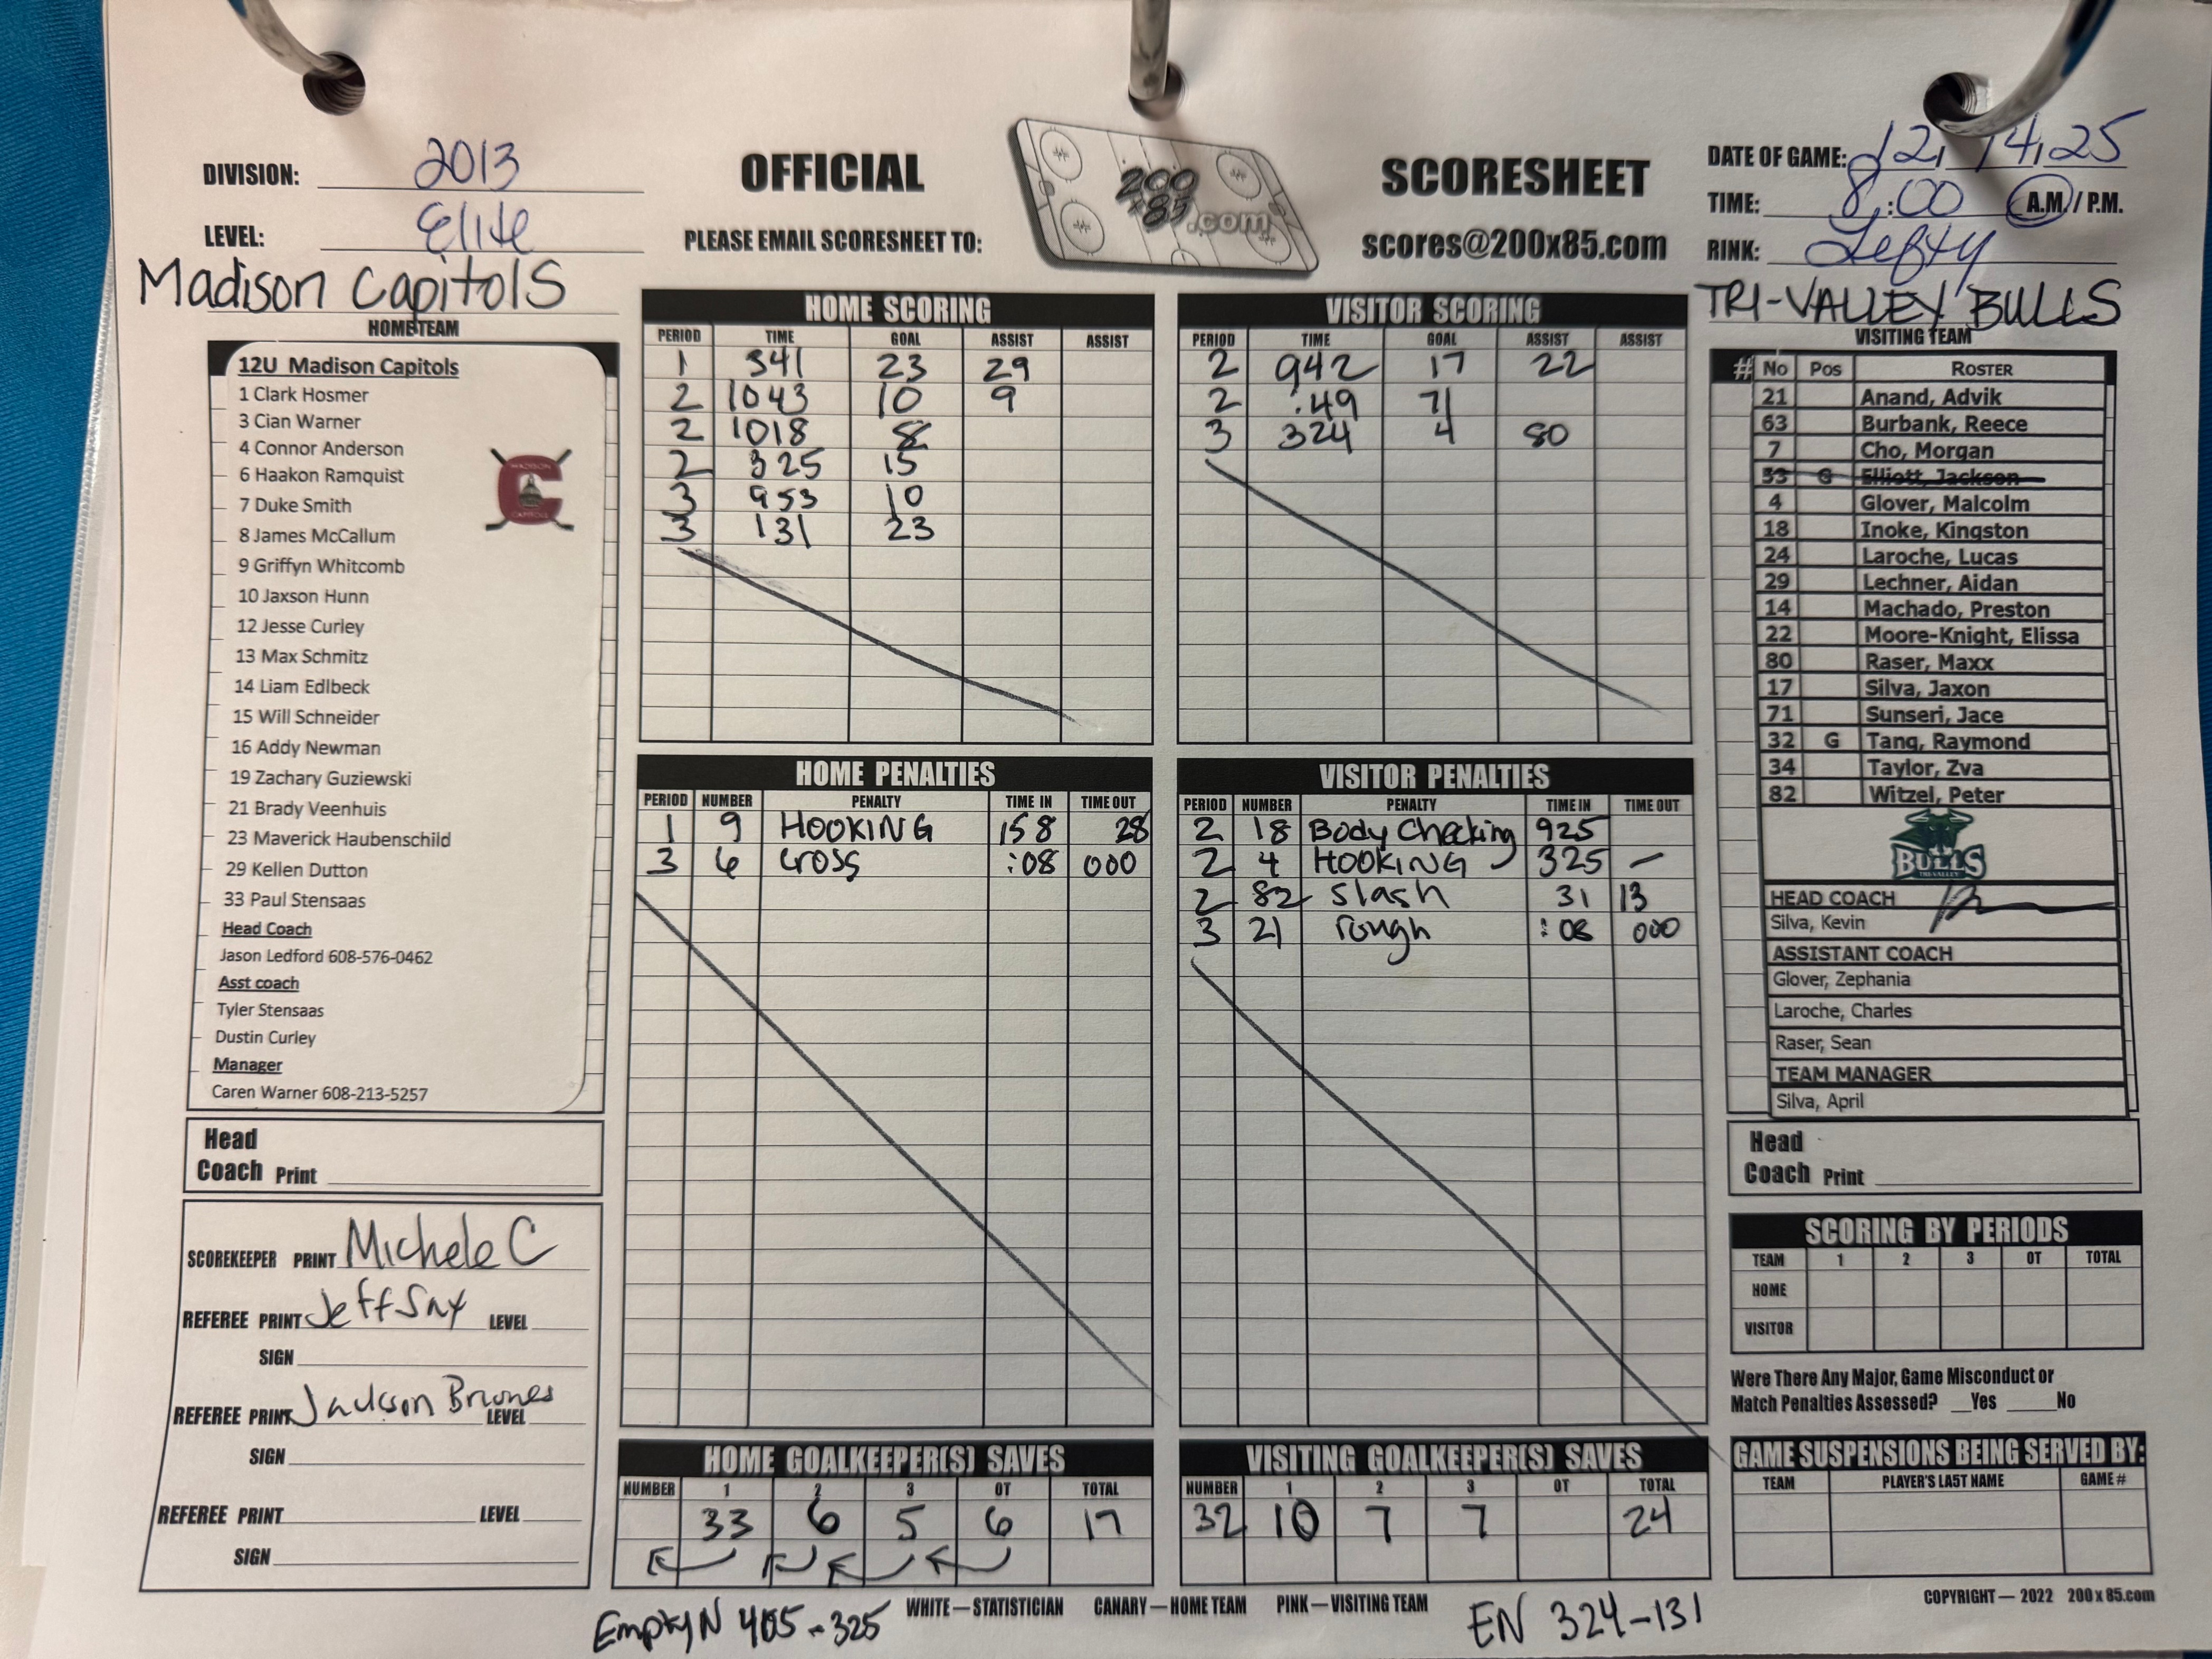 DIVISION: 2013
LEVEL: Elite
OFFICIAL SCORESHEET
PLEASE EMAIL SCORESHEET TO: scores@200x85.com
200x85.com
DATE OF GAME: 12/14/25
TIME: 8:00 A.M. / P.M.
RINK: Lefty
Madison Capitols
HOME TEAM
12U Madison Capitols
1 Clark Hosmer
3 Cian Warner
4 Connor Anderson
6 Haakon Ramquist
7 Duke Smith
8 James McCallum
9 Griffyn Whitcomb
10 Jaxson Hunn
12 Jesse Curley
13 Max Schmitz
14 Liam Edlbeck
15 Will Schneider
16 Addy Newman
19 Zachary Guziewski
21 Brady Veenhuis
23 Maverick Haubenschild
29 Kellen Dutton
33 Paul Stensaas
Head Coach
Jason Ledford 608-576-0462
Asst coach
Tyler Stensaas
Dustin Curley
Manager
Caren Warner 608-213-5257
MADISON
C
CAPITOLS
Head
Coach Print
SCOREKEEPER PRINT Michele C
REFEREE PRINT Jeff Say LEVEL
SIGN
REFEREE PRINT Jackson Briones LEVEL
SIGN
REFEREE PRINT LEVEL
SIGN
HOME SCORING
PERIOD TIME GOAL ASSIST ASSIST
1 341 23 29
2 1043 10 9
2 1018 8
2 325 15
3 953 10
3 131 23
HOME PENALTIES
PERIOD NUMBER PENALTY TIME IN TIME OUT
1 9 HOOKING 158 28
3 6 Cross :08 000
HOME GOALKEEPER(S) SAVES
NUMBER 1 2 3 OT TOTAL
33 6 5 6 17
EmptyN 405-325
VISITOR SCORING
PERIOD TIME GOAL ASSIST ASSIST
2 942 17 22
2 :49 71
3 324 4 80
VISITOR PENALTIES
PERIOD NUMBER PENALTY TIME IN TIME OUT
2 18 Body Checking 925
2 4 HOOKING 325 —
2 82 Slash 31 13
3 21 rough :08 000
VISITING GOALKEEPER(S) SAVES
NUMBER 1 2 3 OT TOTAL
32 10 7 7 24
EN 324-131
WHITE — STATISTICIAN CANARY — HOME TEAM PINK — VISITING TEAM
TRI-VALLEY BULLS
VISITING TEAM
# No Pos ROSTER
21 Anand, Advik
63 Burbank, Reece
7 Cho, Morgan
53 G Elliott, Jackson
4 Glover, Malcolm
18 Inoke, Kingston
24 Laroche, Lucas
29 Lechner, Aidan
14 Machado, Preston
22 Moore-Knight, Elissa
80 Raser, Maxx
17 Silva, Jaxon
71 Sunseri, Jace
32 G Tang, Raymond
34 Taylor, Zva
82 Witzel, Peter
BULLS
TRI-VALLEY
HEAD COACH
Silva, Kevin
ASSISTANT COACH
Glover, Zephania
Laroche, Charles
Raser, Sean
TEAM MANAGER
Silva, April
Head
Coach Print
SCORING BY PERIODS
TEAM 1 2 3 OT TOTAL
HOME
VISITOR
Were There Any Major, Game Misconduct or
Match Penalties Assessed? __Yes ____No
GAME SUSPENSIONS BEING SERVED BY:
TEAM PLAYER'S LAST NAME GAME #
COPYRIGHT — 2022 200x85.com